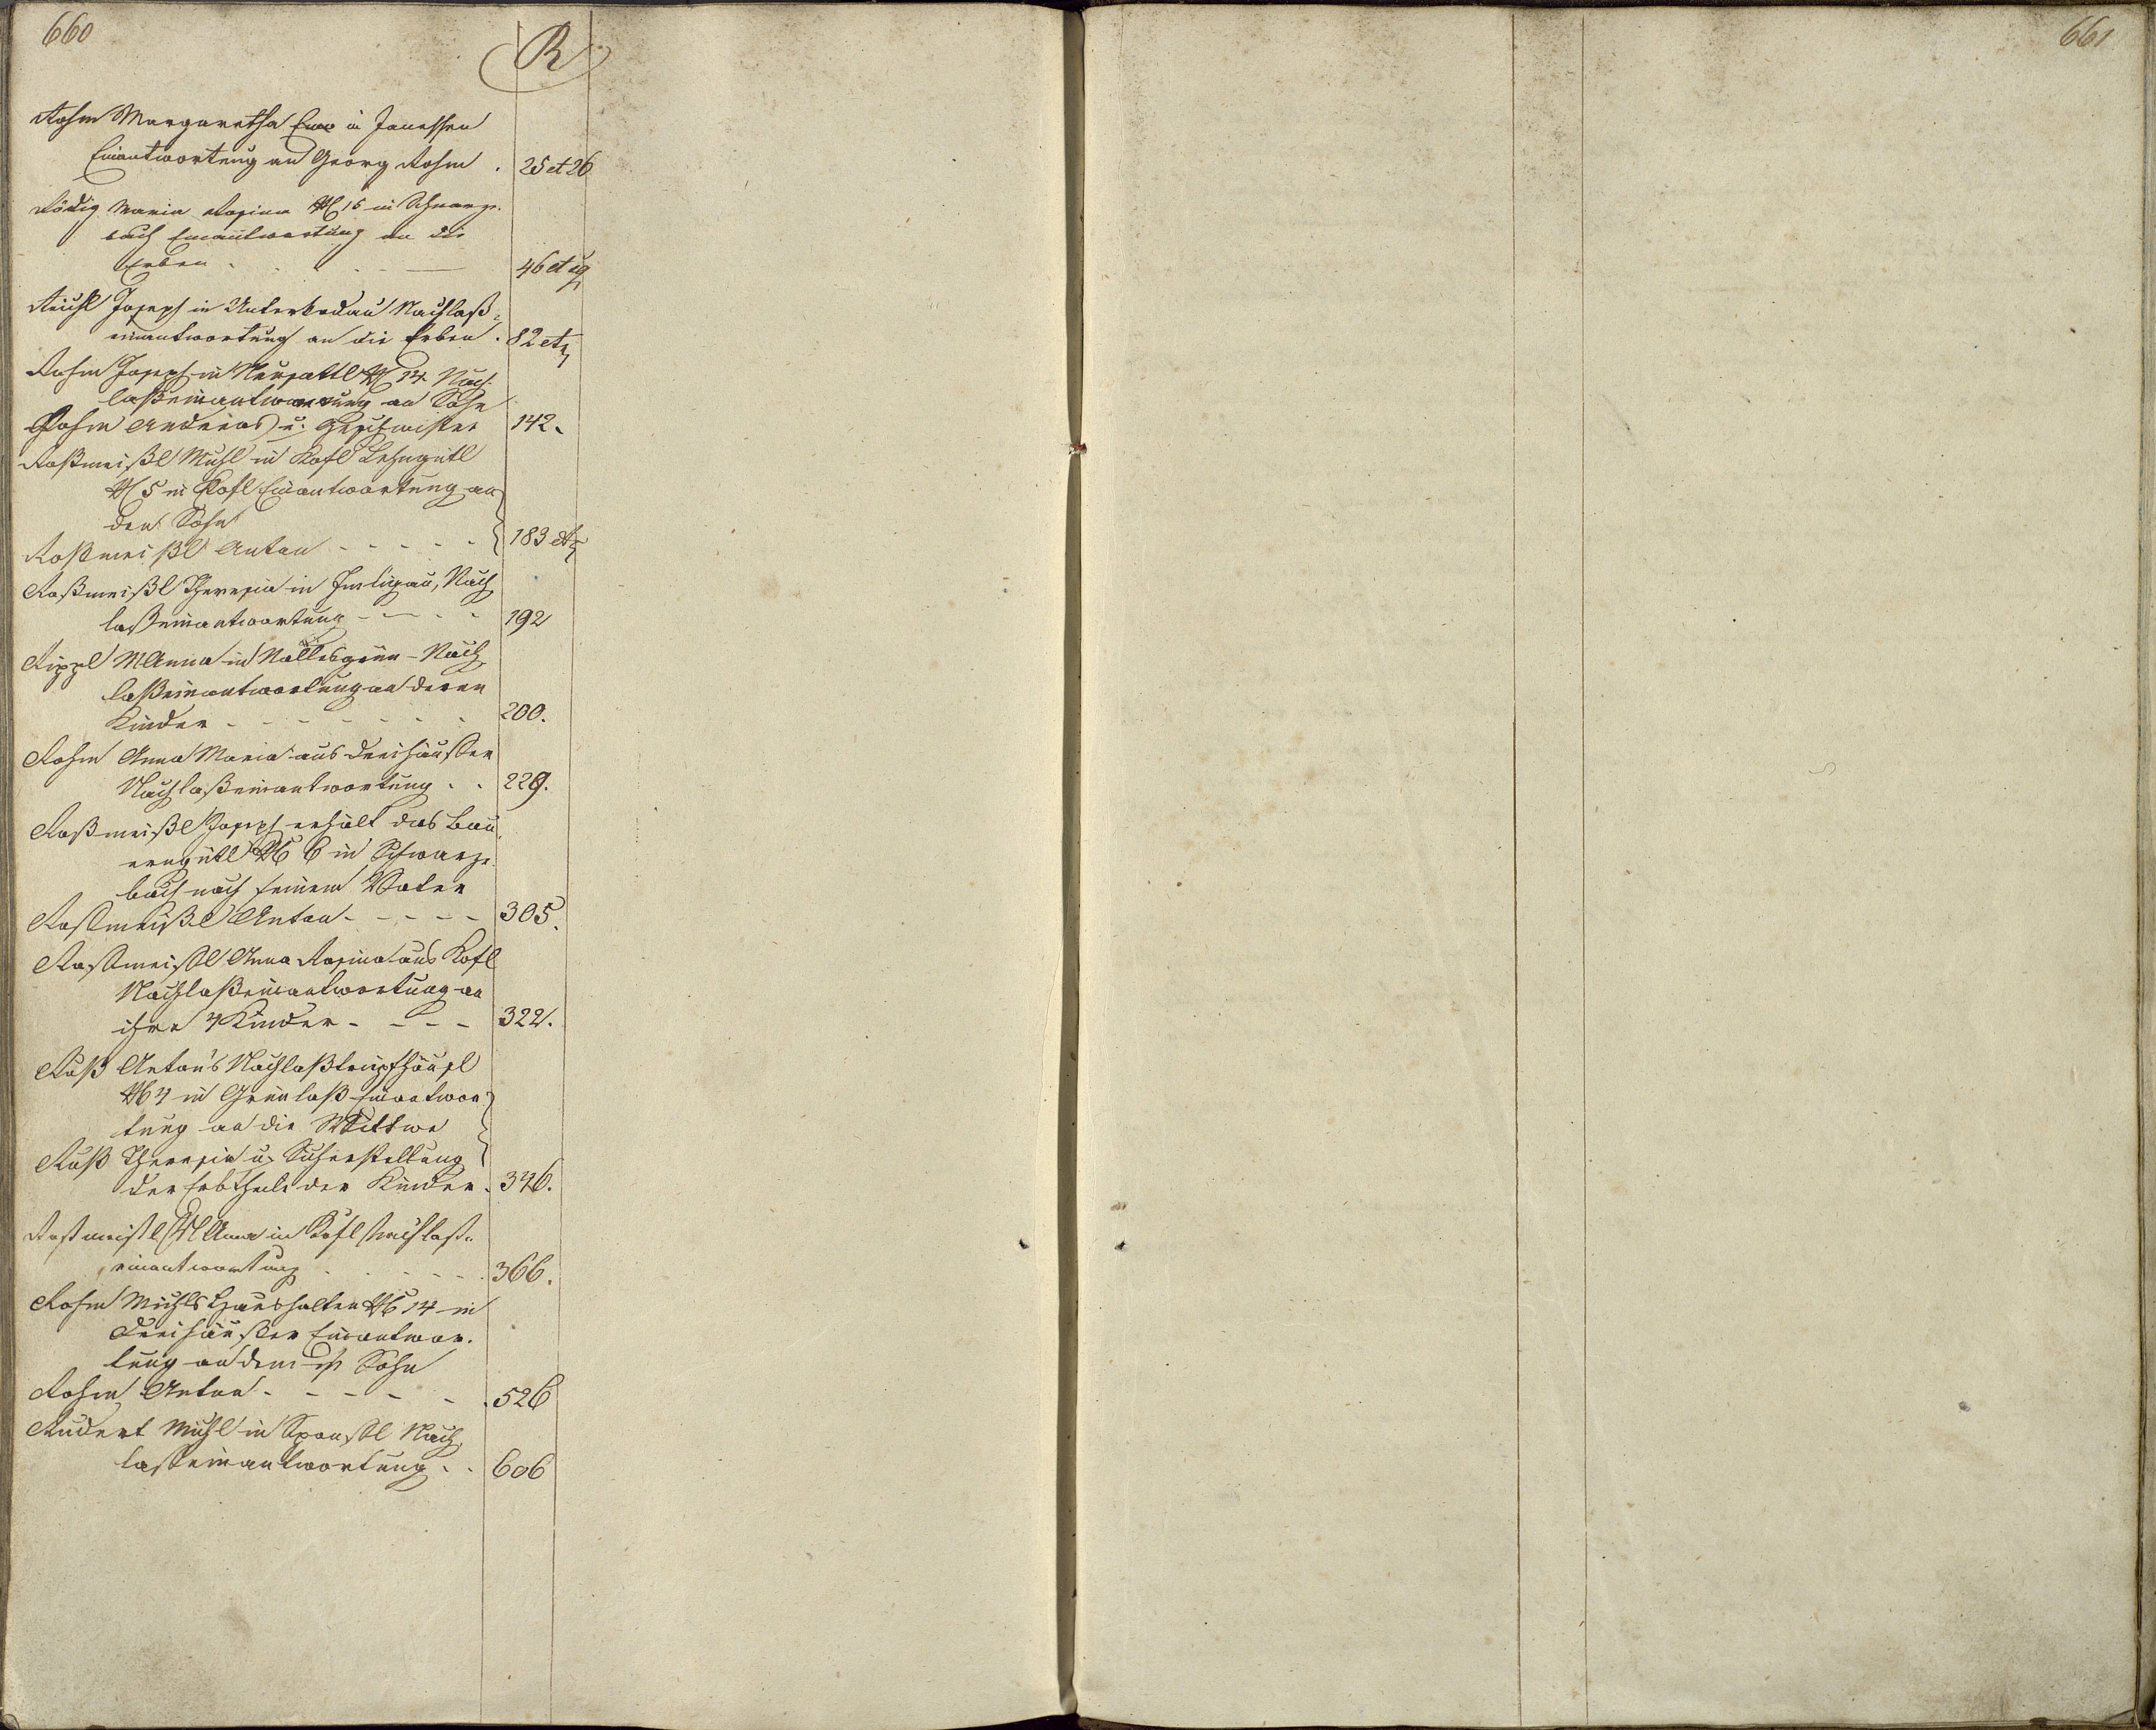 660
R
661
Rohm Margaretha in Janessen
Einantwortung an Georg Rohm . 25 et 26
Rödig Maria Rosina N 15 in Schwarz-
bach Einantwortung an die
Erben . 46 et sq
Joseph in Unterchodau Nachlaß-
einantwortung an die Erben . 82 et
Rohm Joseph in Neusattl N 14 Nach-
laßeinantwortung an Sohn
Rohm Andreas u. Geschwister 142.
Roßmeißl Michl in Kofl Lehngütl
N 5 in Kofl Einantwortung an
den Sohn
Roßmeißl Anton - - - - - 183 et
Roßmeißl Theresia in Imligau, Nach
laßeinantwortung - - - - 192
Rippl M Anna in Nallesgrün - Nach
laßeinantwortung an deren
Kinder - - - - - - 200.
Rohm Anna Maria aus Dreihäußer
Nachlaßeinantwortung . . 229.
Roßmeißl Joseph erhält das Bau
erngütl N 6 in Schwarz-
bach nach seinem Vater
Roßmeißl Anton - - - - - 305.
Roßmeißl Anna Rosina aus Kofl
Nachlaßeinantwortung an
ihre 4 Kinder - - - - 322.
Ruß Anton's
N 4 in Grünlaß Einantwor
tung an die Wittwe
Ruß Theresia u. Sicherstellung
der Erbtheile der Kinder . 346.
Roßmeißl M Anna in Kofl Nachlaß-
einantwortung . . . . . 366.
Rohm Michls N 14 in
Dreihäußer Einantwor-
tung an dem Sohn
Rohm Anton - - - - - . 526
Rudert Michl in Sponsl Nach
laßeinantwortung . . 606